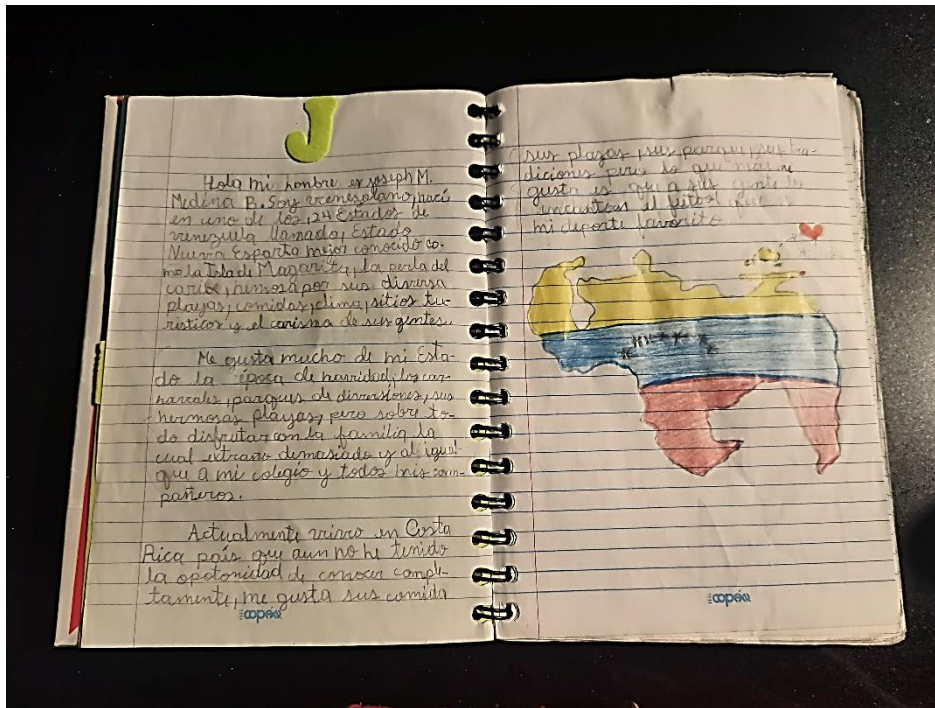 J
Hola mi nombre es joseph M.
Medina B. Soy venezolano, nací
en uno de los 24 Estados de
venezuela llamado, Estado
Nueva Esparta mejor conocido co-
mo la Isla de Magarita, la perla del
caribe, hemosa por sus diversa
playas, comidas, clima, sitios tu-
risticos y el carisma de sus gentes.
Me gusta mucho de mi Esta-
do la época de navidad, los car-
navales, parques de diversiones, sus
hermosas playas, pero sobre to-
do disfrutar con la familia la
cual extraño demasiado y al igual
que a mi colegio y todos mis com-
pañeros.
Actualmente vivo en Costa
Rica país que aun no he tenido
la opotonidad de conocer comple-
tamente, me gusta sus comida
sus plazas, sus parque, sus tra-
diciones pero lo que más me
gusta es que a sus gente les
encanta el futbol que es
mi deporte favorito